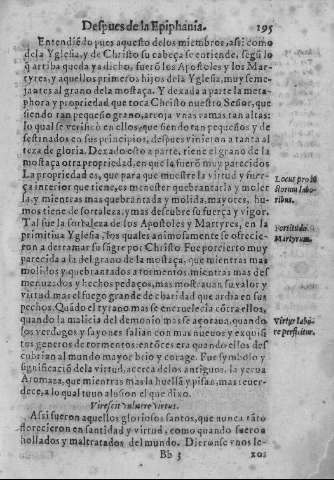 Despues de la Epiphania. 195
Entendiẽdo pues aquesto delos miembros, assi como
dela Yglesia, y de Christo su cabeça se entiende, segũ lo
q̃ arriba queda dicho, fuerõ los Apostoles y los Mar-
tyres, y aquellos primeros hijos dela Yglesia, muy seme-
jantes al grano dela mostaça. Y dexada a parte la meta-
phora y propriedad que toca Christo nuestro Señor, que
siendo tan pequeño grano, arroja vnas ramas tan altas:
lo qual se verificò en ellos, que siendo tan pequeños y de
sestinados en sus principios, despues vinieron a tanta al
teza de gloria. Dexado esto a parte, tiene el grano de la
mostaça otra propriedad, en que le fuerõ muy parecidos
La propriedad es, que para que muestre la virtud y fuer-
ça interior que tiene, es menester quebrantarla y moler
la, y mientras mas quebrantada y molida, mayores, hu-
mos tiene de fortaleza, y mas descubre su fuerça y vigor.
Tal fue la fortaleza de los Apostoles y Martyres, en la
primitiua Yglesia, los quales animosamente se ofrecie-
ron a derramar su sãgre por Christo. Fue por cierto muy
parecida a la del grano de la mostaça, que mientras mas
molidos y quebrantados a tormentos, mientras mas des
menuzados y hechos pedaços, mas mostrauan su valor y
virtud, mas el fuego grande de charidad que ardia en sus
pechos. Quãdo el tyrano mas se encruelecia cõtra ellos,
quando la malicia del demonio mas se açoraua, quando
los verdugos y sayones salian con mas nueuos y exquisi
tos generos de tormentos: entõces era quando ellos des
cubrian al mundo mayor brio y corage. Fue symbolo y
significació dela virtud, acerca de los antiguos, la yerua
Aromaza, que mientras mas la huellã y pisan, mas reuer-
dece, a lo qual tuuo alusion el que dixo.
Virescit vulnere virtus.
Assi fueron aquellos gloriosos santos, que nunca tãto
florecieron en santidad y virtud, como quando fueron
hollados y maltratados del mundo. Dieronse vnos le-
Bb 3 xos
Fortitudo
Martyrum.
Virtus labo
re perficitur.